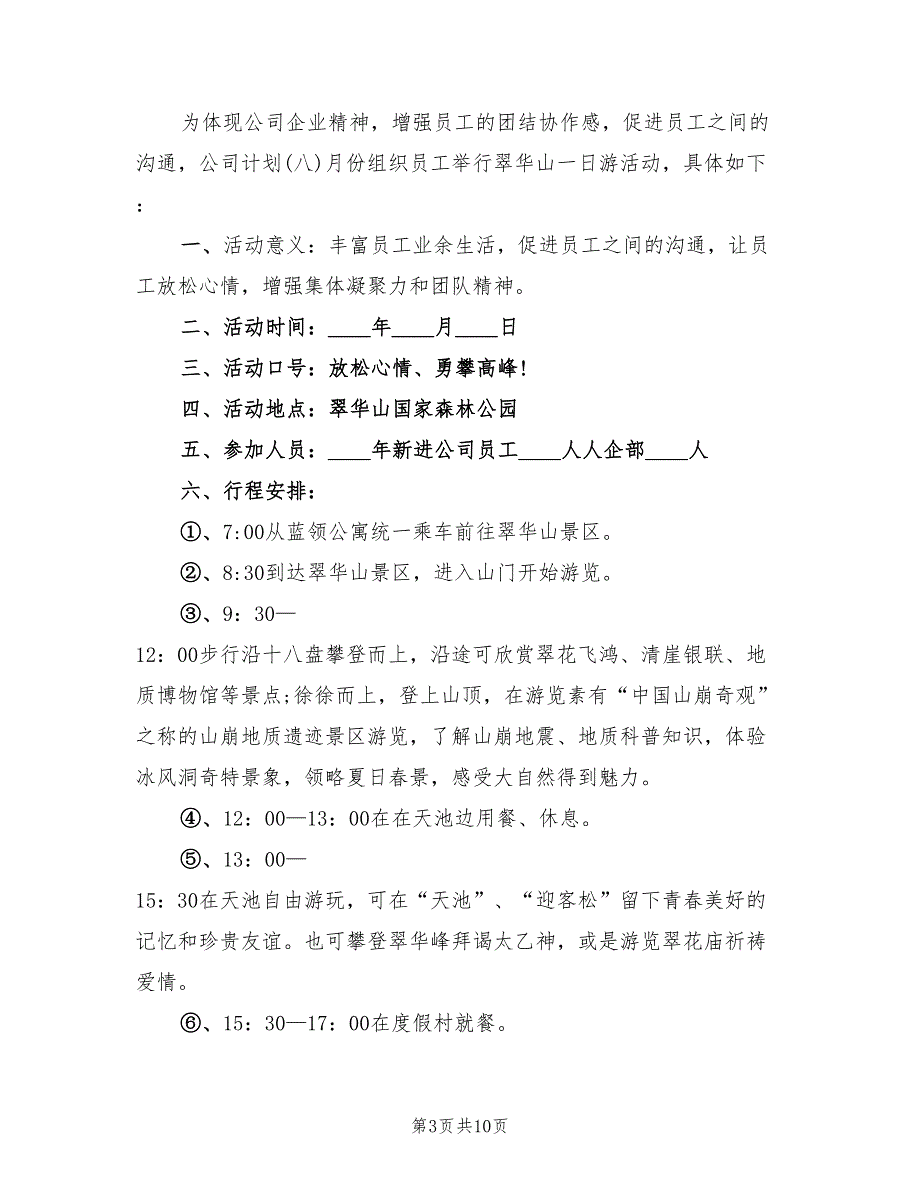 为体现公司企业精神，增强员工的团结协作感，促进员工之间的
沟通，公司计划(八)月份组织员工举行翠华山一日游活动，具体如下
：
一、活动意义：丰富员工业余生活，促进员工之间的沟通，让员
工放松心情，增强集体凝聚力和团队精神。
二、活动时间：____年____月____日
三、活动口号：放松心情、勇攀高峰!
四、活动地点：翠华山国家森林公园
五、参加人员：____年新进公司员工____人人企部____人
六、行程安排：
①、7:00从蓝领公寓统一乘车前往翠华山景区。
②、8:30到达翠华山景区，进入山门开始游览。
③、9：30—
12：00步行沿十八盘攀登而上，沿途可欣赏翠花飞鸿、清崖银联、地
质博物馆等景点;徐徐而上，登上山顶，在游览素有“中国山崩奇观”
之称的山崩地质遗迹景区游览，了解山崩地震、地质科普知识，体验
冰风洞奇特景象，领略夏日春景，感受大自然得到魅力。
④、12：00—13：00在在天池边用餐、休息。
⑤、13：00—
15：30在天池自由游玩，可在“天池”、“迎客松”留下青春美好的
记忆和珍贵友谊。也可攀登翠华峰拜谒太乙神，或是游览翠花庙祈祷
爱情。
⑥、15：30—17：00在度假村就餐。
第3页共10页